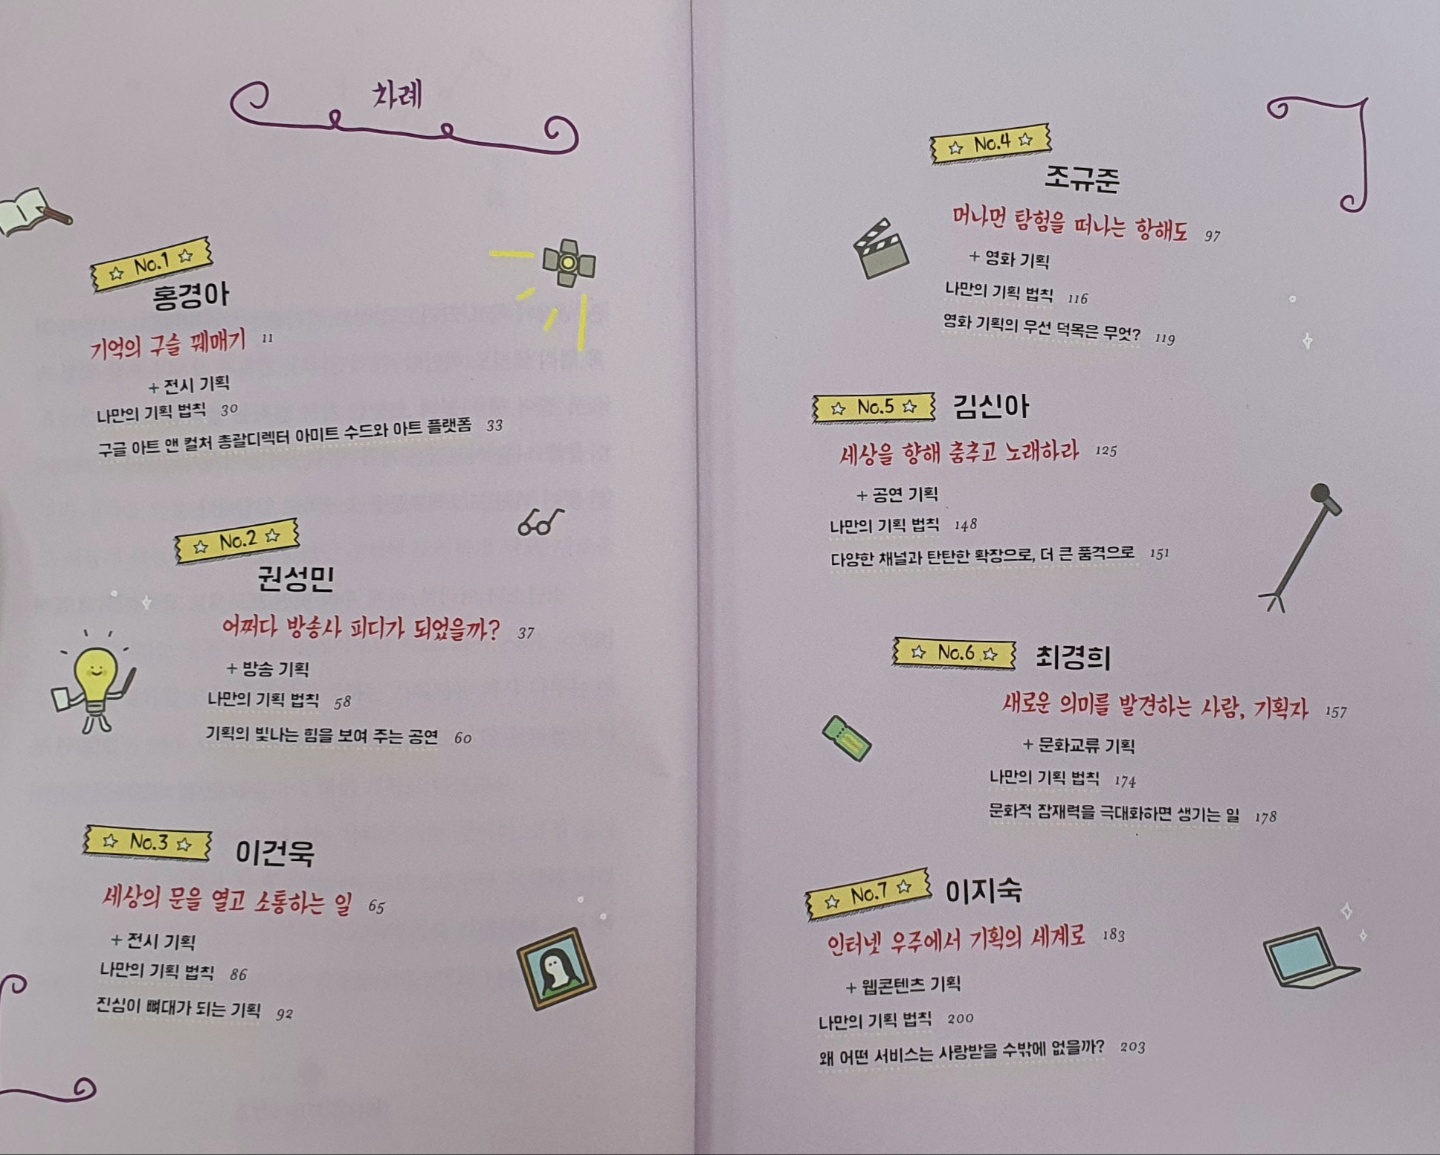 차례
No.1
홍경아
기억의 구슬 꿰매기 11
+ 전시 기획
나만의 기획 법칙 30
구글 아트 앤 컬처 총괄디렉터 아미트 수드와 아트 플랫폼 33
No.2
권성민
어쩌다 방송사 피디가 되었을까? 37
+ 방송 기획
나만의 기획 법칙 58
기획의 빛나는 힘을 보여 주는 공연 60
No.3 이건욱
세상의 문을 열고 소통하는 일 65
+ 전시 기획
나만의 기획 법칙 86
진심이 뼈대가 되는 기획 92
No.4
조규준
머나먼 탐험을 떠나는 항해도 97
+ 영화 기획
나만의 기획 법칙 116
영화 기획의 우선 덕목은 무엇? 119
No.5 김신아
세상을 향해 춤추고 노래하라 125
+ 공연 기획
나만의 기획 법칙 148
다양한 채널과 탄탄한 확장으로, 더 큰 품격으로 151
No.6 최경희
새로운 의미를 발견하는 사람, 기획자 157
+ 문화교류 기획
나만의 기획 법칙 174
문화적 잠재력을 극대화하면 생기는 일 178
No.7 이지숙
인터넷 우주에서 기획의 세계로 183
+ 웹콘텐츠 기획
나만의 기획 법칙 200
왜 어떤 서비스는 사랑받을 수밖에 없을까? 203